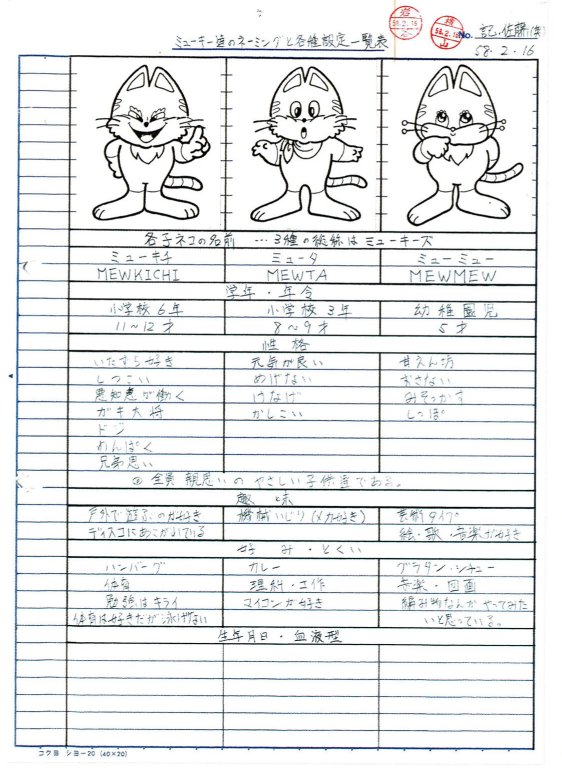 ミューキー達のネーミングと各種設定一覧表
58.2.16
58.2.16
No. 記.佐藤
58.2.16
各子ネコの名前 …3種の総称はミューキーズ
ミューキチ ミュータ ミューミュー
MEWKICHI MEWTA MEWMEW
学年・年令
小学校6年 小学校3年 幼稚園児
11〜12才 8〜9才 5才
性格
いたずら好き 元気が良い 甘えん坊
しつこい めげない おさない
悪知恵が働く けなげ みそっかす
ガキ大将 かしこい しっぽ
ドジ
わんぱく
兄弟思い
全員親思いのやさしい子供達である。
趣味
戸外で遊ぶのが好き 機械いじり(メカ好き) 芸術タイプ
ディスコにあこがれている 絵・歌・音楽が好き
好み・とくい
ハンバーグ カレー グラタン・シチュー
体育 理科・工作 音楽・図画
勉強はキライ マイコンが好き 編み物なんかやってみた
体育は好きだが泳げない いと思っている。
生年月日・血液型
コクヨ シヨー20 (40×20)